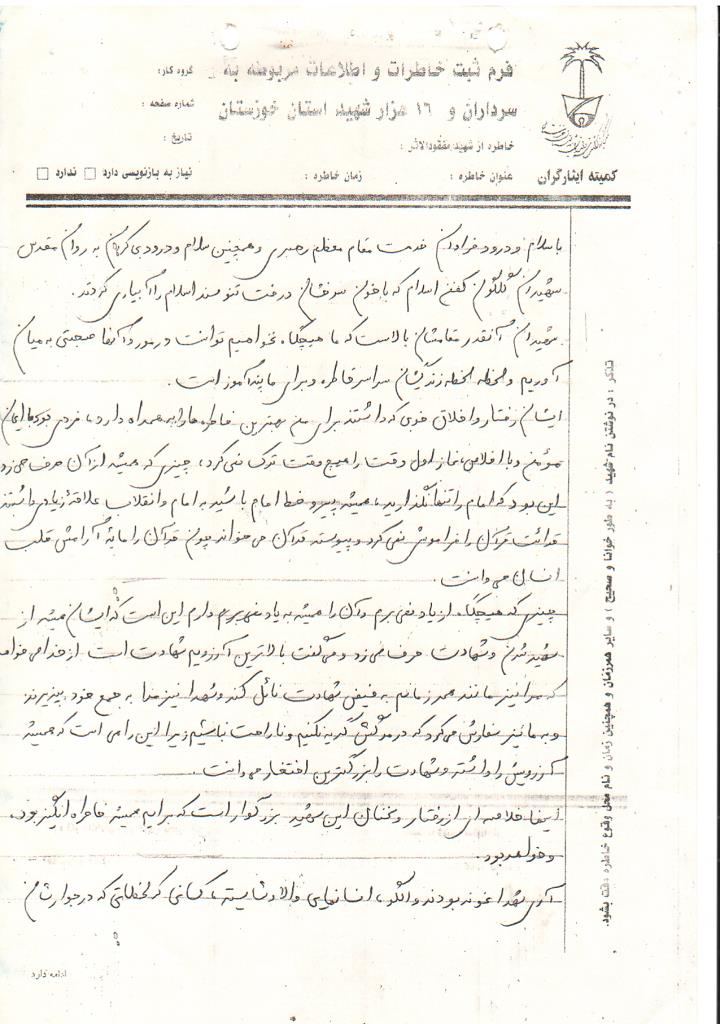 فرم ثبت خاطرات و اطلاعات مربوطه به
سرداران و ۱۶ هزار شهید استان خوزستان
خاطره از شهید مفقودالاثر :
عنوان خاطره : زمان خاطره :
گروه کار:
شماره صفحه :
تاریخ :
نیاز به بازنویسی دارد ندارد
کمیته ایثارگران
با سلام و درود فراوان خدمت مقام معظم رهبری و همچنین سلام و درود بی کران به روان مقدس
شهیدان گلگون کفن اسلام که با خون سرخشان درخت تنومند اسلام را آبیاری کردند.
شهیدان آنقدر مقامشان بالاست که ما هیچگاه نخواهیم توانست در مورد آنها صحبتی به میان
آوریم و لحظه لحظه زندگیشان سراسر خاطره و برای ما پندآموز است.
ایشان رفتار و اخلاق خوبی که داشتند برای من بهترین خاطره ها را به همراه دارد، فردی بود با ایمان
مؤمن و با اخلاص، نماز اول وقت را هیچ وقت ترک نمی کرد، چیزی که همیشه از آن حرف می زد
این بود که امام را تنها نگذارید، همیشه پیرو خط امام باشید به امام و انقلاب علاقۀ زیادی داشتند
قرائت قرآن را فراموش نمی کرد و پیوسته قرآن می خواند چون قرآن را مایۀ آرامش قلب
انسان می دانست.
چیزی که هیچگاه از یاد نمی برم و آن را همیشه به یاد دارم این است که ایشان همیشه از
شهید شدن و شهادت حرف می زد و می گفت بالاترین آرزویم شهادت است از خدا می خواهم
که مرا نیز مانند همرزمانم به فیض شهادت نائل کند و شهدا نیز مرا به جمع خود بپذیرند
و به ما نیز سفارش می کرد که در مرگش گریه نکنیم و ناراحت نباشیم زیرا این راهی است که همیشه
آرزویش را داشته و شهادت را بزرگترین افتخار می دانست.
اینها خلاصه ای از رفتار و سخنان این شهید بزرگوار است که برایم همیشه خاطره انگیز بوده
و خواهد بود.
آری شهدا نمونه بودند و الگو، انسانهایی والا و شایسته، کسانی که لحظاتی که در جوارشان
تذکر : در نوشتن نام شهید ( به طور خوانا و صحیح ) و سایر همرزمان و همچنین زمان و نام محل وقوع خاطره دقت بشود.
ادامه دارد